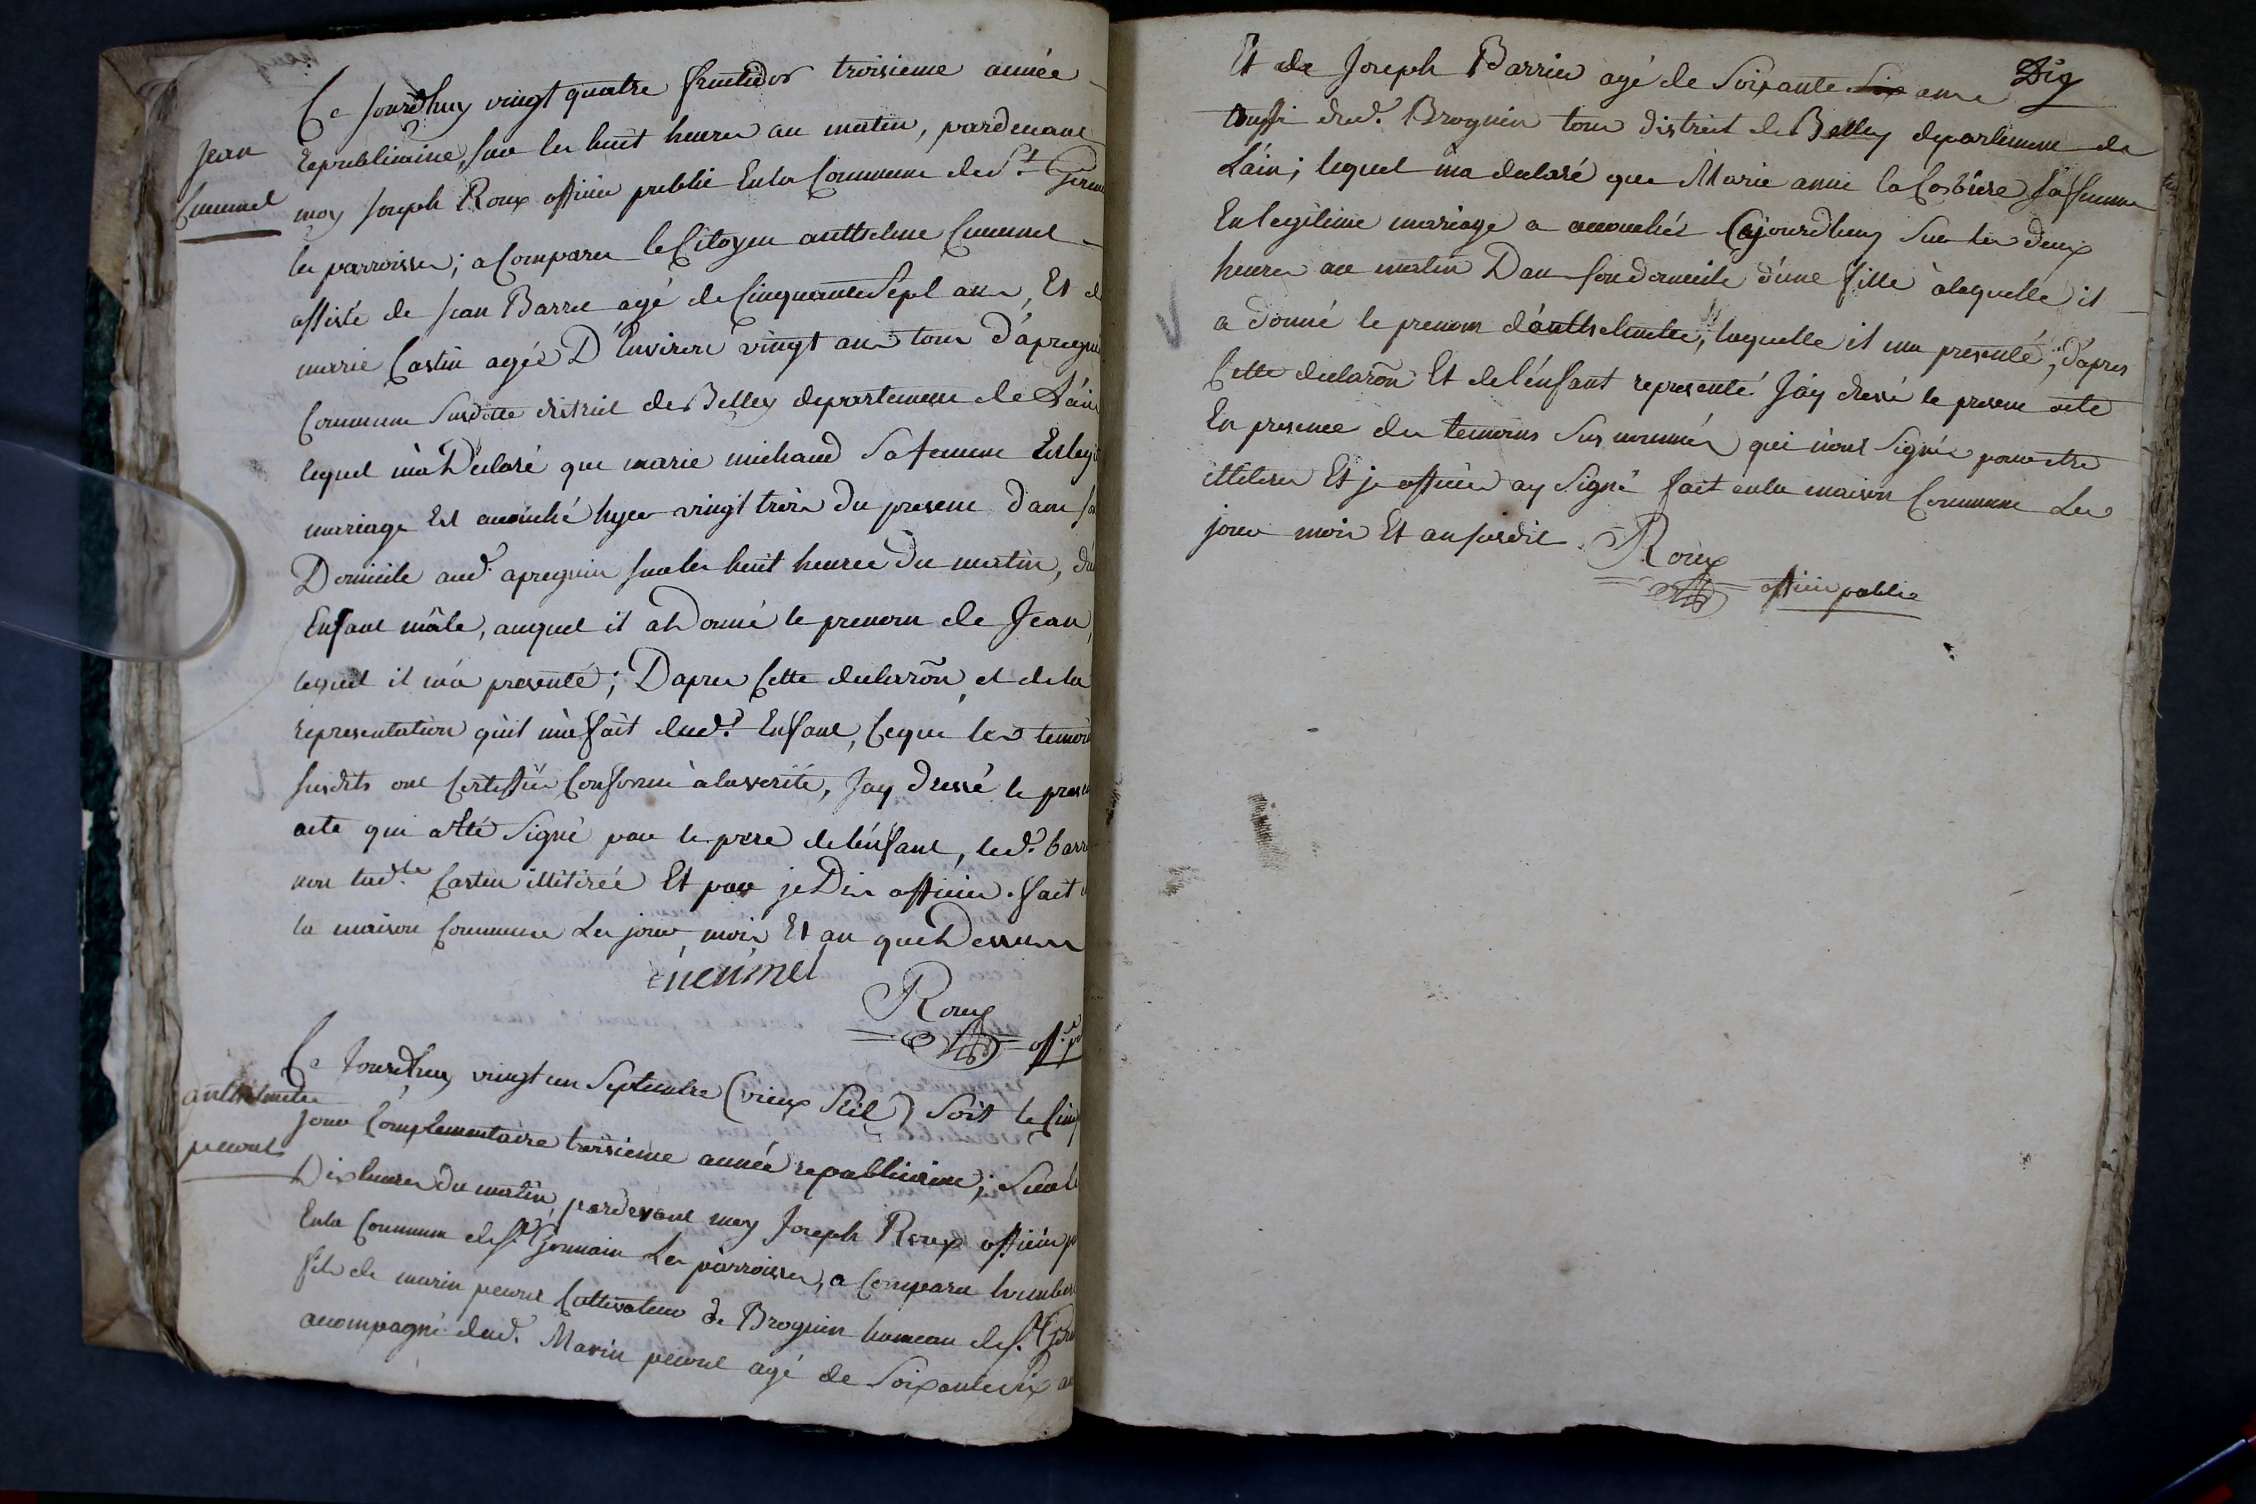 Jean
Cuenel
Ce jourdhuy vingt quatre fructidor troisieme année
republicaine, sur les huit heures au matin, pardevant
moy Joseph Roux officier public En la Commune de St Germ
les parroisses; a Comparu le Citoyen anthelme
assisté de Jean Barru agé de Cinquante Sept ans, Et d
marie Castin agée D'Environ vingt ans tous d'apregni
Commune Susditte district de Belley departement de L'ain
lequel m'a Déclaré que marie michaud Sa femme En legi
mariage Est accouché hyer vingt trois du present dans so
Domicile aud. apregnin sur les huit heures Du matin, d'u
Enfant mâle, auquel il a Donné le prenom de Jean,
lequel il m'a presenté; Dapres Cette declaron et de la
representation quil m'a fait dud. Enfant, Ceque les temoi
susdits ont Certiffié Conforme à la verité, Jay dressé le prese
acte qui a Eté Signé par le pere de l'enfant, led. barr
non lad.te Castin illitirée Et par je Dis officier. fait
la maison Commune Les jour, mois Et an que Dessus
Roux
off. p
anthelmette
pecoul
Ce Jourdhuy vingt un Septembre (vieux Stil) Soit le Cinq
jour Complementaire troisieme année republicaine; Sur le
Dix heures du matin, pardevant moy Joseph Roux officier p
En la Commune de St Germain Les parroisses, a Comparu humbert
fils de marin pecoul Cultivateur de Brognin hameau de St Ger
acompagné dud. Marin pecoul agé de Soixante Six a
Dix
Et de Joseph Barrin agé de Soixante Six ans
aussi dud. Brognin tous district de Belley departement de
L'ain; lequel ma declaré que Marie anne la Corbiere Sa femme
En legitime mariage a accouchée Cejourdhuy Sur les deux
heures au matin Dans son domicile d'une fille à laquelle il
a donné le prenom d'anthelmette, laquelle il ma presenté; d'apres
Cette declaron Et de l'enfant representé J'ay dressé le present acte
En presence des temoins Sus nommés qui n'ont Signés pour etre
illiteres Et je officier ay Signé fait en la maison Commune Les
jour mois Et an susdit
Roux
officier public